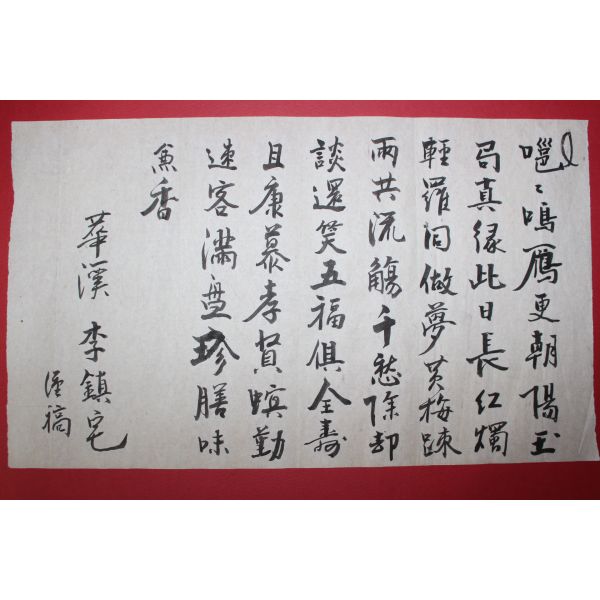 嗈〻鳴鴈更朝陽玉
局真緣此日長紅燭
輕羅同做夢黃梅踈
雨共流觴千愁除却
談還笑五福俱全壽
且康慕孝賢螟勤
速客滿盤珍膳味
兼香
華溪 李鎮宅
謹稿